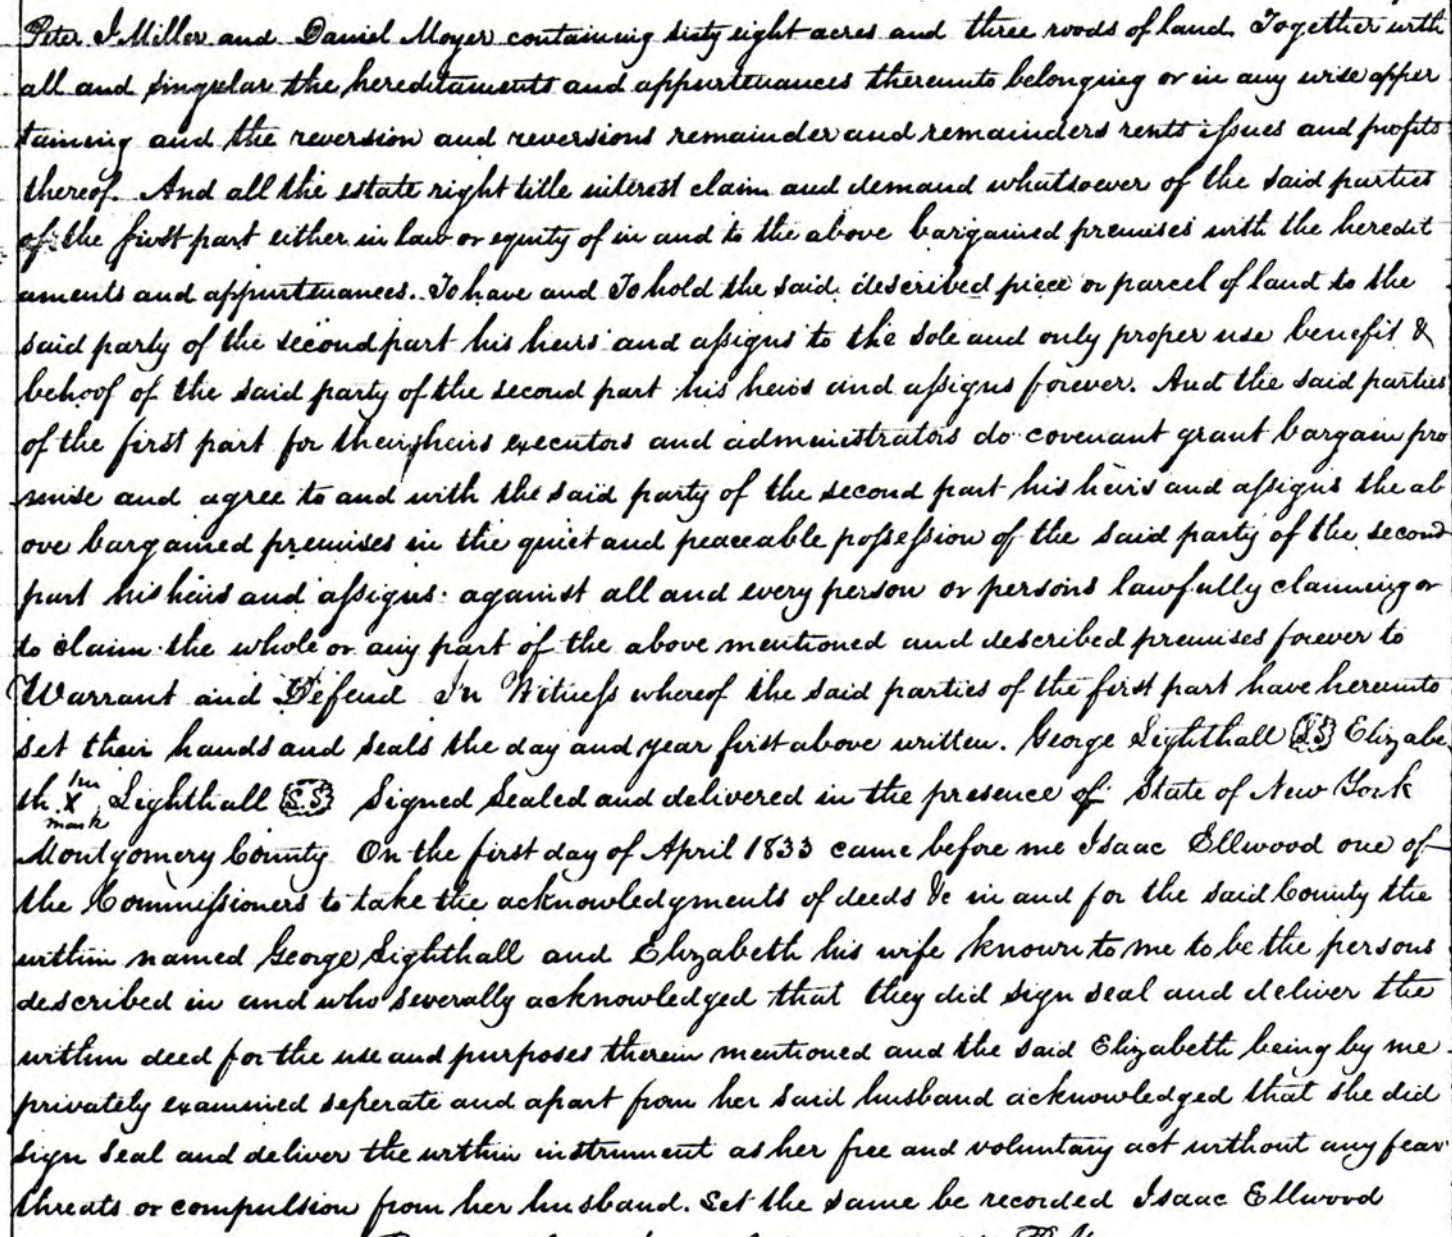 Peter I Miller and Daniel Moyer containing sixty eight acres and three roods of land. Together with
all and singular the hereditaments and appurtenances thereunto belonging or in any wise apper
taining and the reversion and reversions remainder and remainders rents issues and profits
thereof. And all the estate right title interest claim and demand whatsoever of the said parties
of the first part either in law or equity of in and to the above bargained premises with the heredit
aments and appurtenances. To have and To hold the said described piece or parcel of land to the
said party of the second part his heirs and assigns to the sole and only proper use benefit &
behoof of the said party of the second part his heirs and assigns forever. And the said parties
of the first part for their heirs executors and administrators do covenant grant bargain pro
mise and agree to and with the said party of the second part his heirs and assigns the ab
ove bargained premises in the quiet and peaceable possession of the said party of the second
part his heirs and assigns against all and every person or persons lawfully claiming or
to claim the whole or any part of the above mentioned and described premises forever to
Warrant and Defend In Witness whereof the said parties of the first part have hereunto
set their hands and seals the day and year first above written. George Lighthall L.S Elizabe
th her X mark Lighthall L.S Signed Sealed and delivered in the presence of State of New York
Montgomery County On the first day of April 1833 came before me Isaac Ellwood one of
the Commissioners to take the acknowledgments of deeds &c in and for the said County the
within named George Lighthall and Elizabeth his wife known to me to be the persons
described in and who severally acknowledged that they did sign seal and deliver the
within deed for the use and purposes therein mentioned and the said Elizabeth being by me
privately examined seperate and apart from her said husband acknowledged that she did
sign seal and deliver the within instrument as her free and voluntary act without any fear
threats or compulsion from her husband. Let the same be recorded Isaac Ellwood